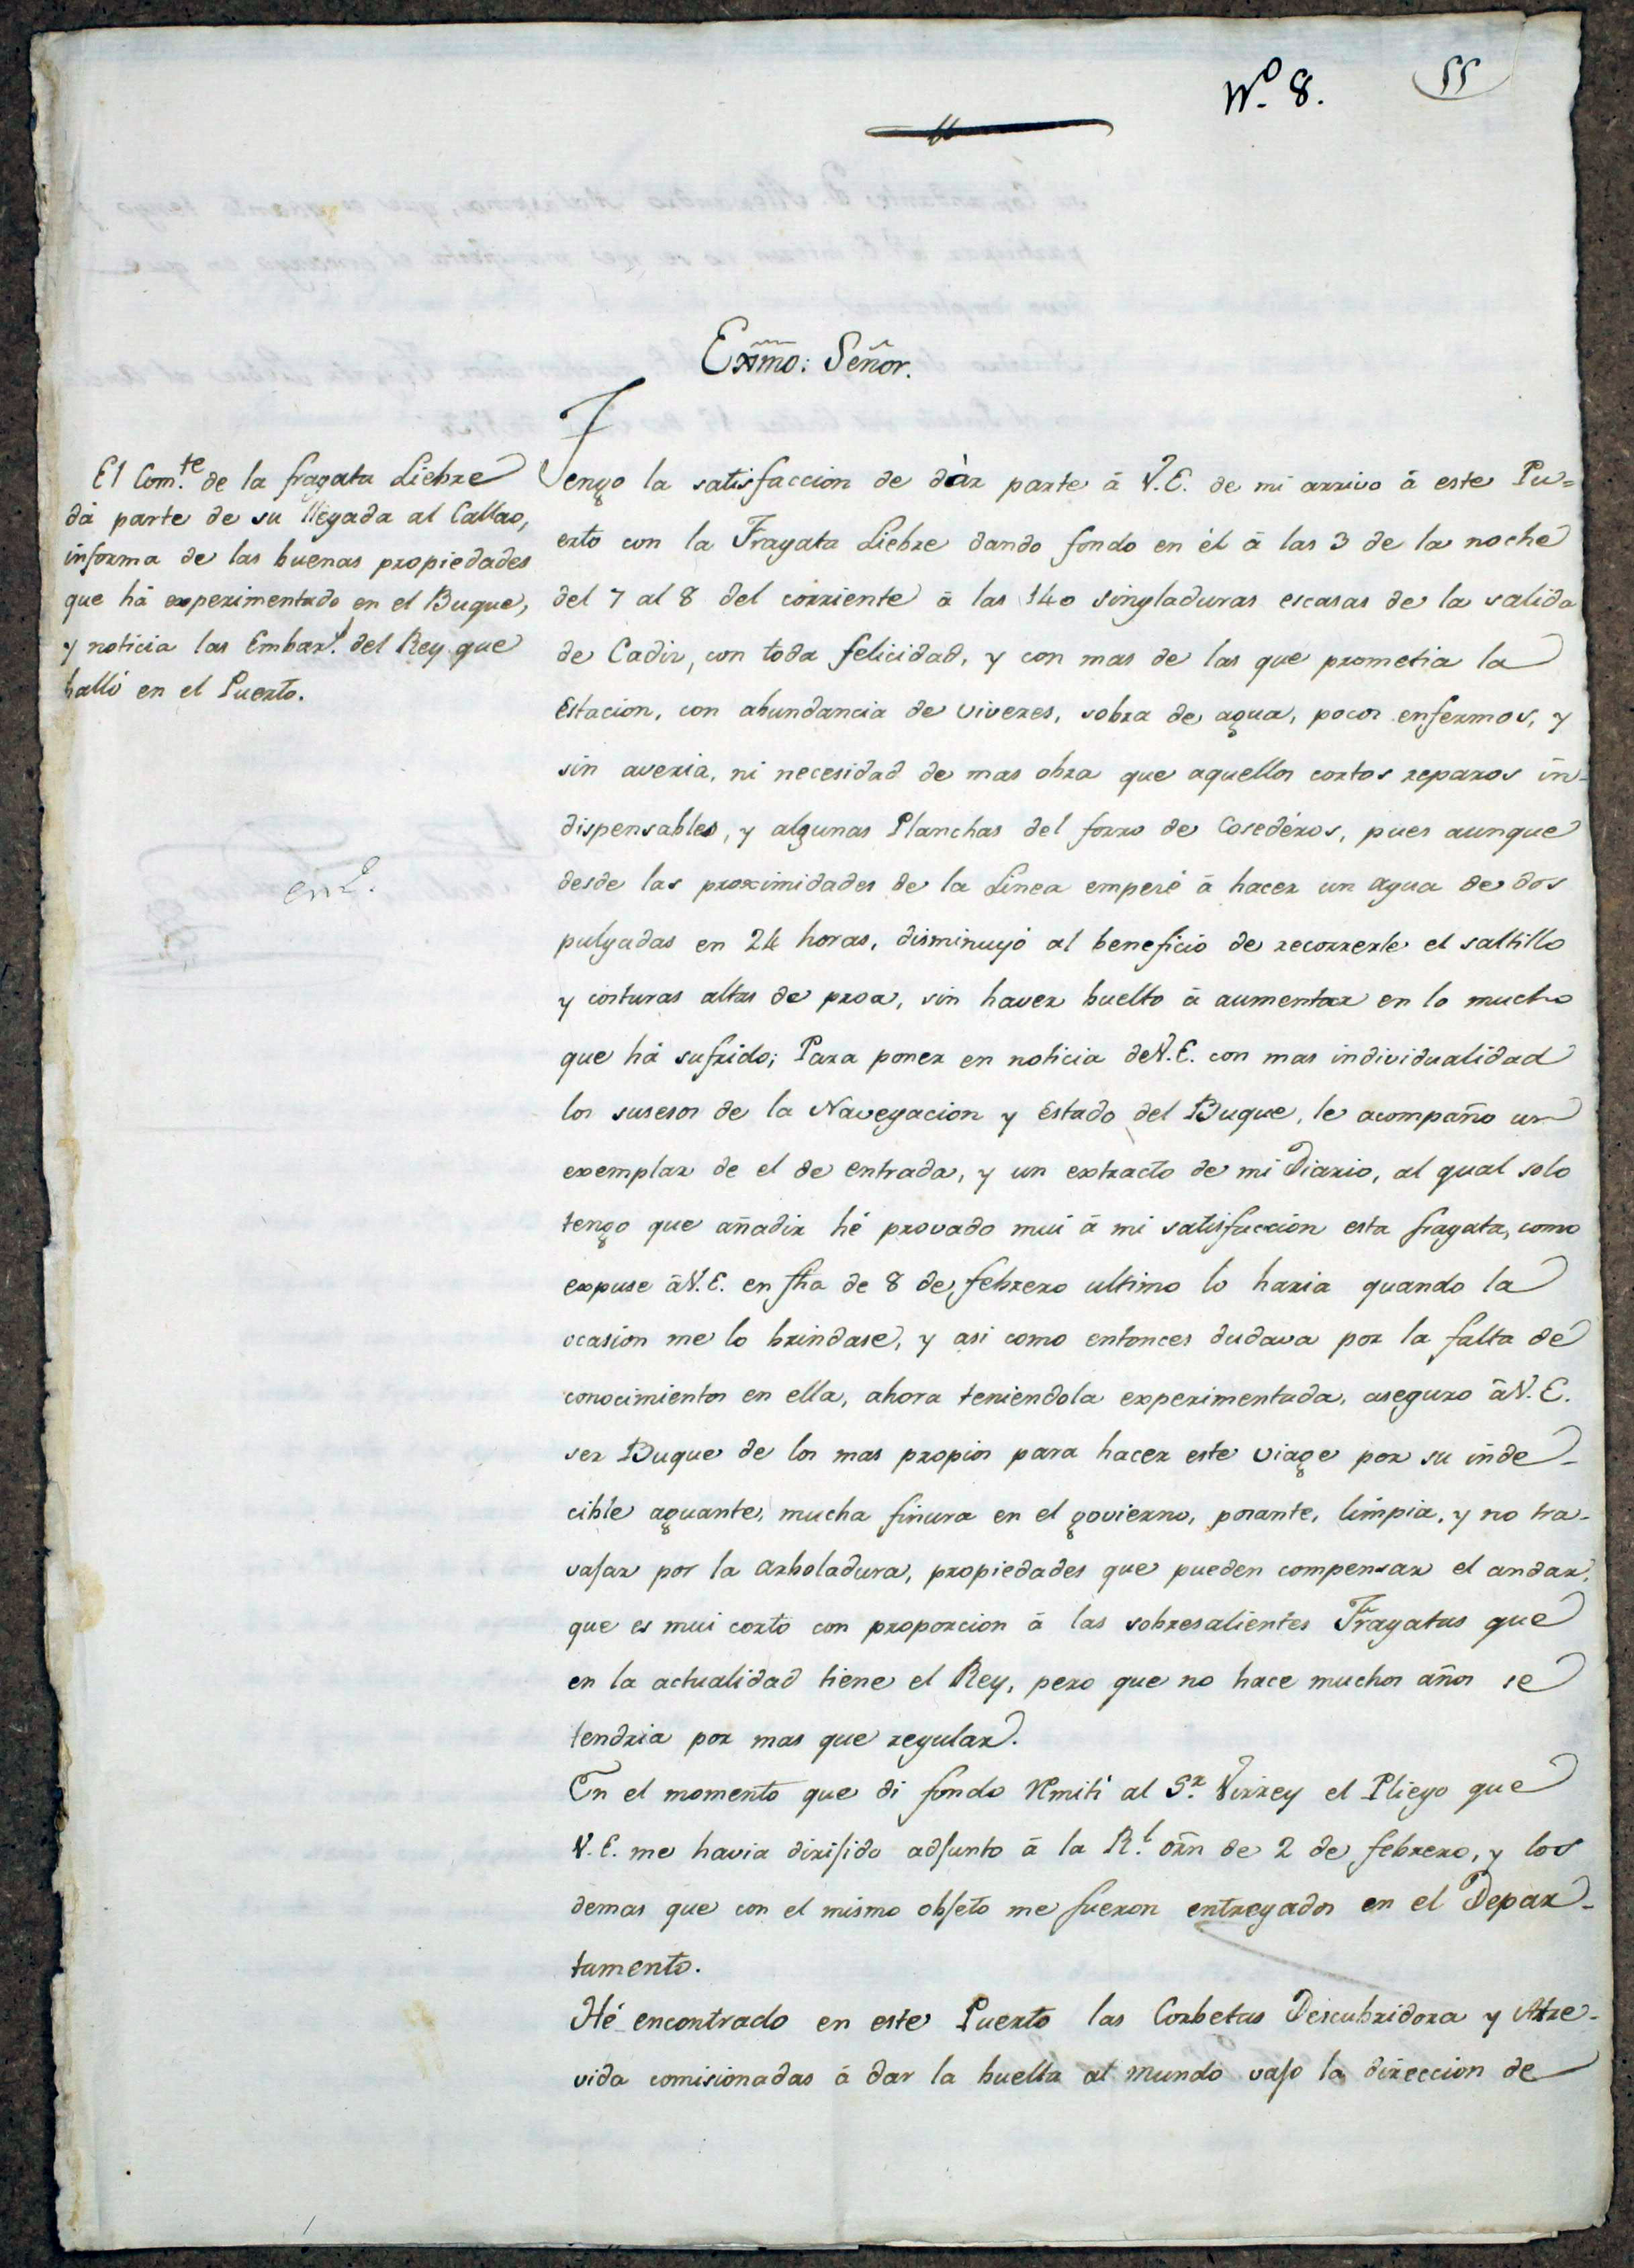 Nº. 8. 55
Exmo: Señor.
El Com.te de la fragata Liebre
dá parte de su llegada al Callao,
informa de las buenas propiedades
que há experimentado en el Buque,
y noticia las Embar.s del Rey que
halló en el Puerto.
Tengo la satisfaccion de dàr parte á V.E. de mi arrivo á este Pu=
erto con la Fragata Liebre dando fondo en él á las 3 de la noche
del 7 al 8 del corriente á las 140 singladuras escasas de la salida
de Cadiz, con toda felicidad, y con mas de las que prometia la
Estacion, con abundancia de viveres, sobra de agua, pocos enfermos, y
sin averia, ni necesidad de mas obra que aquellos cortos reparos in-
dispensables, y algunas Planchas del forro de Cosedéros, pues aunque
desde las proximidades de la Linea empezó á hacer un agua de dos
pulgadas en 24 horas, disminuyó al beneficio de recorrerle el saltillo
y costuras altas de proa, sin haver buelto á aumentar en lo mucho
que há sufrido; Para poner en noticia de V.E. con mas individualidad
los susesos de la Navegacion y Estado del Buque, le acompaño un
exemplar de el de entrada, y un extracto de mi Diario, al qual solo
tengo que añadir hé provado mui á mi satisfaccion esta fragata, como
expuse á V.E. en fha de 8 de febrero ultimo lo haria quando la
ocasion me lo brindase, y asi como entonces dudava por la falta de
conocimientos en ella, ahora teniendola experimentada, aseguro á V.E.
ser Buque de los mas propios para hacer este viage por su inde-
cible aguante, mucha finura en el govierno, posante, limpia, y no tra-
vajar por la arboladura, propiedades que pueden compensar el andar,
que es mui corto con proporcion á las sobresalientes Fragatas que
en la actualidad tiene el Rey, pero que no hace muchos años se
tendria por mas que regular.
En el momento que di fondo remiti al S.r Virrey el Pliego que
V.E. me havia dirijido adjunto á la R.l orn de 2 de febrero, y los
demas que con el mismo objeto me fueron entregados en el Depar-
tamento.
Hé encontrado en este Puerto las Corbetas Descubridora y Atre-
vida comisionadas á dar la buelta al mundo vajo la direccion de